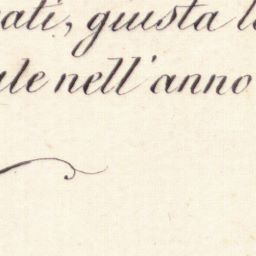 ati, giusta l
le nell'anno